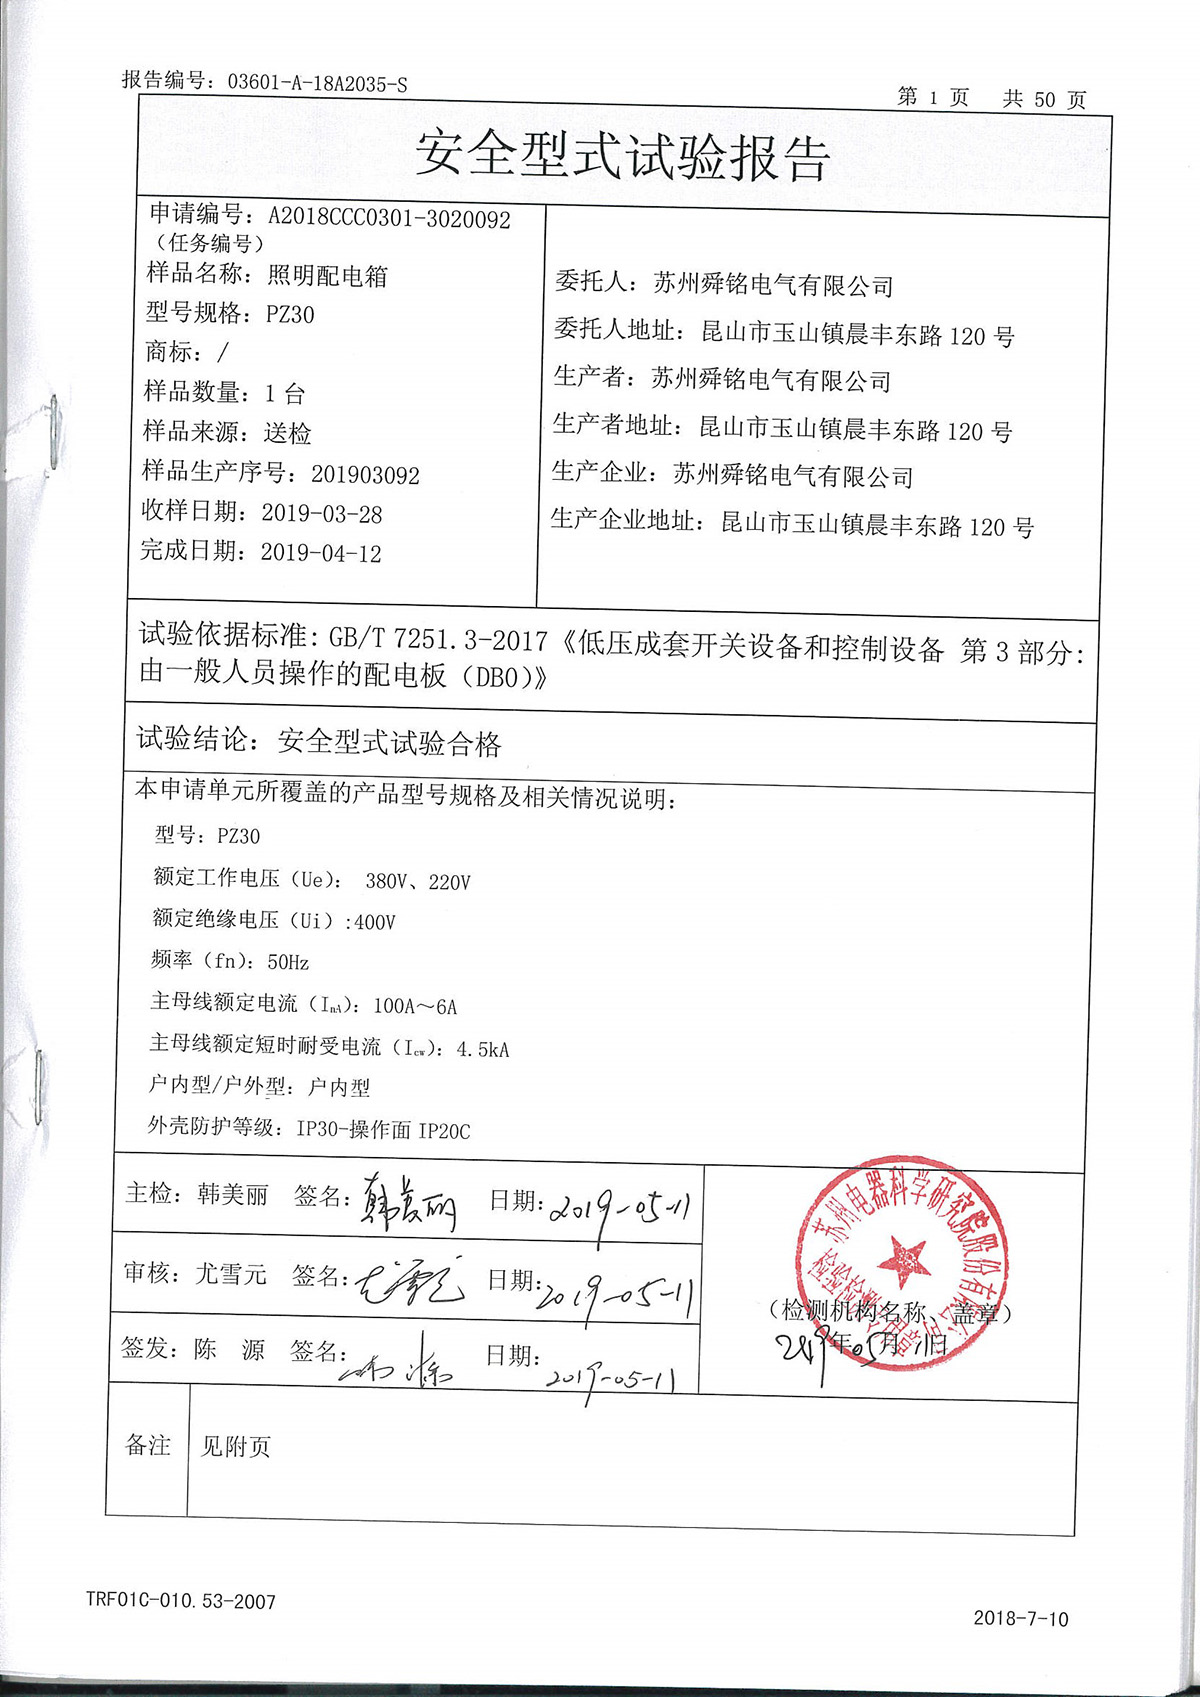 报告编号：03601-A-18A2035-S
第 1 页 共 50 页
安全型式试验报告
申请编号：A2018CCC0301-3020092
（任务编号）
样品名称：照明配电箱
型号规格：PZ30
商标：/
样品数量：1 台
样品来源：送检
样品生产序号：201903092
收样日期：2019-03-28
完成日期：2019-04-12
委托人：苏州舜铭电气有限公司
委托人地址：昆山市玉山镇晨丰东路 120 号
生产者：苏州舜铭电气有限公司
生产者地址：昆山市玉山镇晨丰东路 120 号
生产企业：苏州舜铭电气有限公司
生产企业地址：昆山市玉山镇晨丰东路 120 号
试验依据标准：GB/T 7251.3-2017《低压成套开关设备和控制设备 第 3 部分：
由一般人员操作的配电板（DBO）》
试验结论：安全型式试验合格
本申请单元所覆盖的产品型号规格及相关情况说明：
型号：PZ30
额定工作电压（Ue）： 380V、220V
额定绝缘电压（Ui）:400V
频率（fn）：50Hz
主母线额定电流（InA）：100A～6A
主母线额定短时耐受电流（Icw）：4.5kA
户内型/户外型：户内型
外壳防护等级：IP30-操作面 IP20C
主检：韩美丽 签名：韩美丽 日期：2019-05-11
审核：尤雪元 签名：尤雪元 日期：2019-05-11
签发：陈 源 签名： 日期：2019-05-11
苏州电器科学研究院股份有限公司
（检测机构名称、盖章）
2019年05月11日
备注 见附页
TRF01C-010.53-2007
2018-7-10